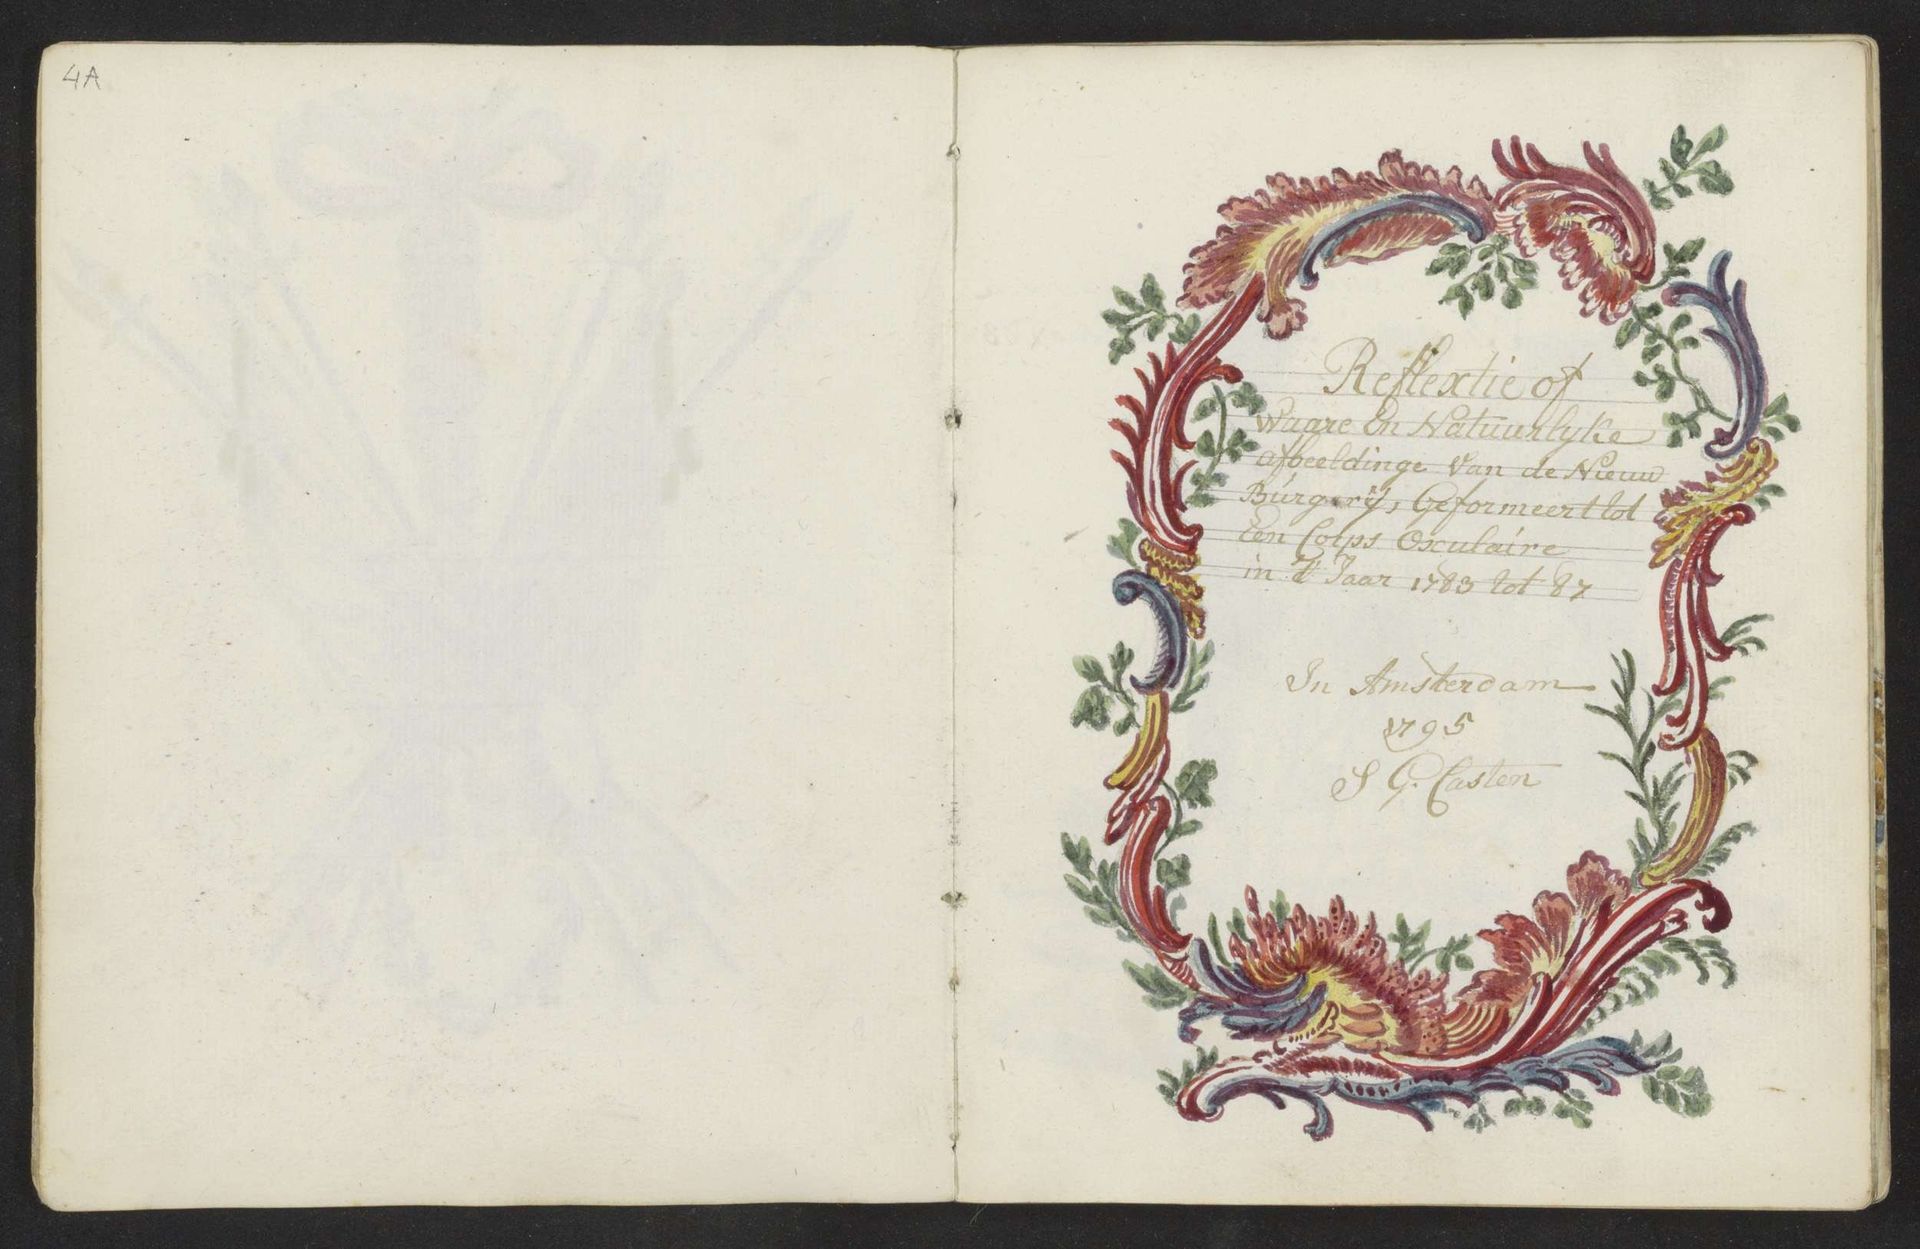 4A
Reflextie of
Waare En Natuurlyke
afbeeldinge Van de Nieuw
Burgerij, Geformeert tot
Een Corps Oxulaire
in 't Jaar 1783 tot 87
In Amsterdam
1795
S G. Casten